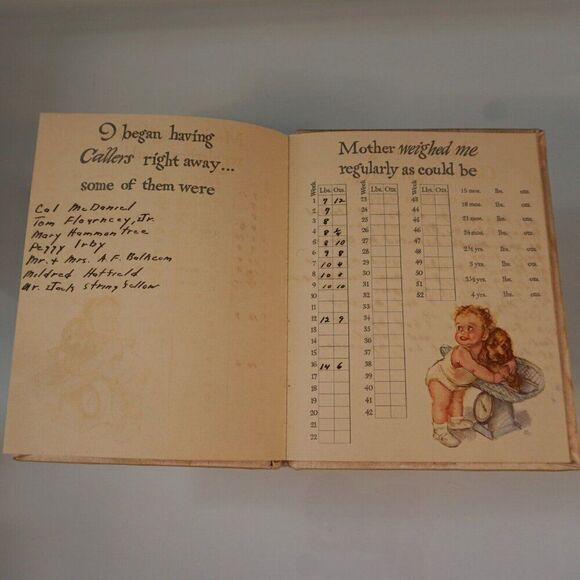 I began having
Callers right away...
some of them were
Cal McDaniel
Tom Flournoy, Jr.
Mary Hammon tree
Peggy Irby
Mr. + Mrs. A.F.
Mildred Hatfield
Mr. Jack Stringfellow
Mother weighed me
regularly as could be
Week Lbs. Ozs.
1 7 12
2 7
3 8
4 8
5 8 10
6 9 8
7 10 4
8 10 8
9 10 10
10
11
12 12 9
13
14
15
16 14 6
17
18
19
20
21
22
Week Lbs. Ozs.
23
24
25
26
27
28
29
30
31
32
33
34
35
36
37
38
39
40
41
42
Week Lbs. Ozs.
43
44
45
46
47
48
49
50
51
52
15 mos. lbs. ozs.
18 mos. lbs. ozs.
21 mos. lbs. ozs.
24 mos. lbs. ozs.
2½ yrs. lbs. ozs.
3 yrs. lbs. ozs.
3½ yrs. lbs. ozs.
4 yrs. lbs. ozs.